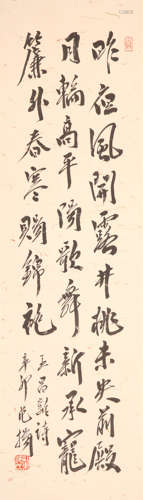 昨夜風開露井桃未央前殿
月輪高平陽歌舞新承寵
簾外春寒賜錦袍
王昌齡詩
辛卯